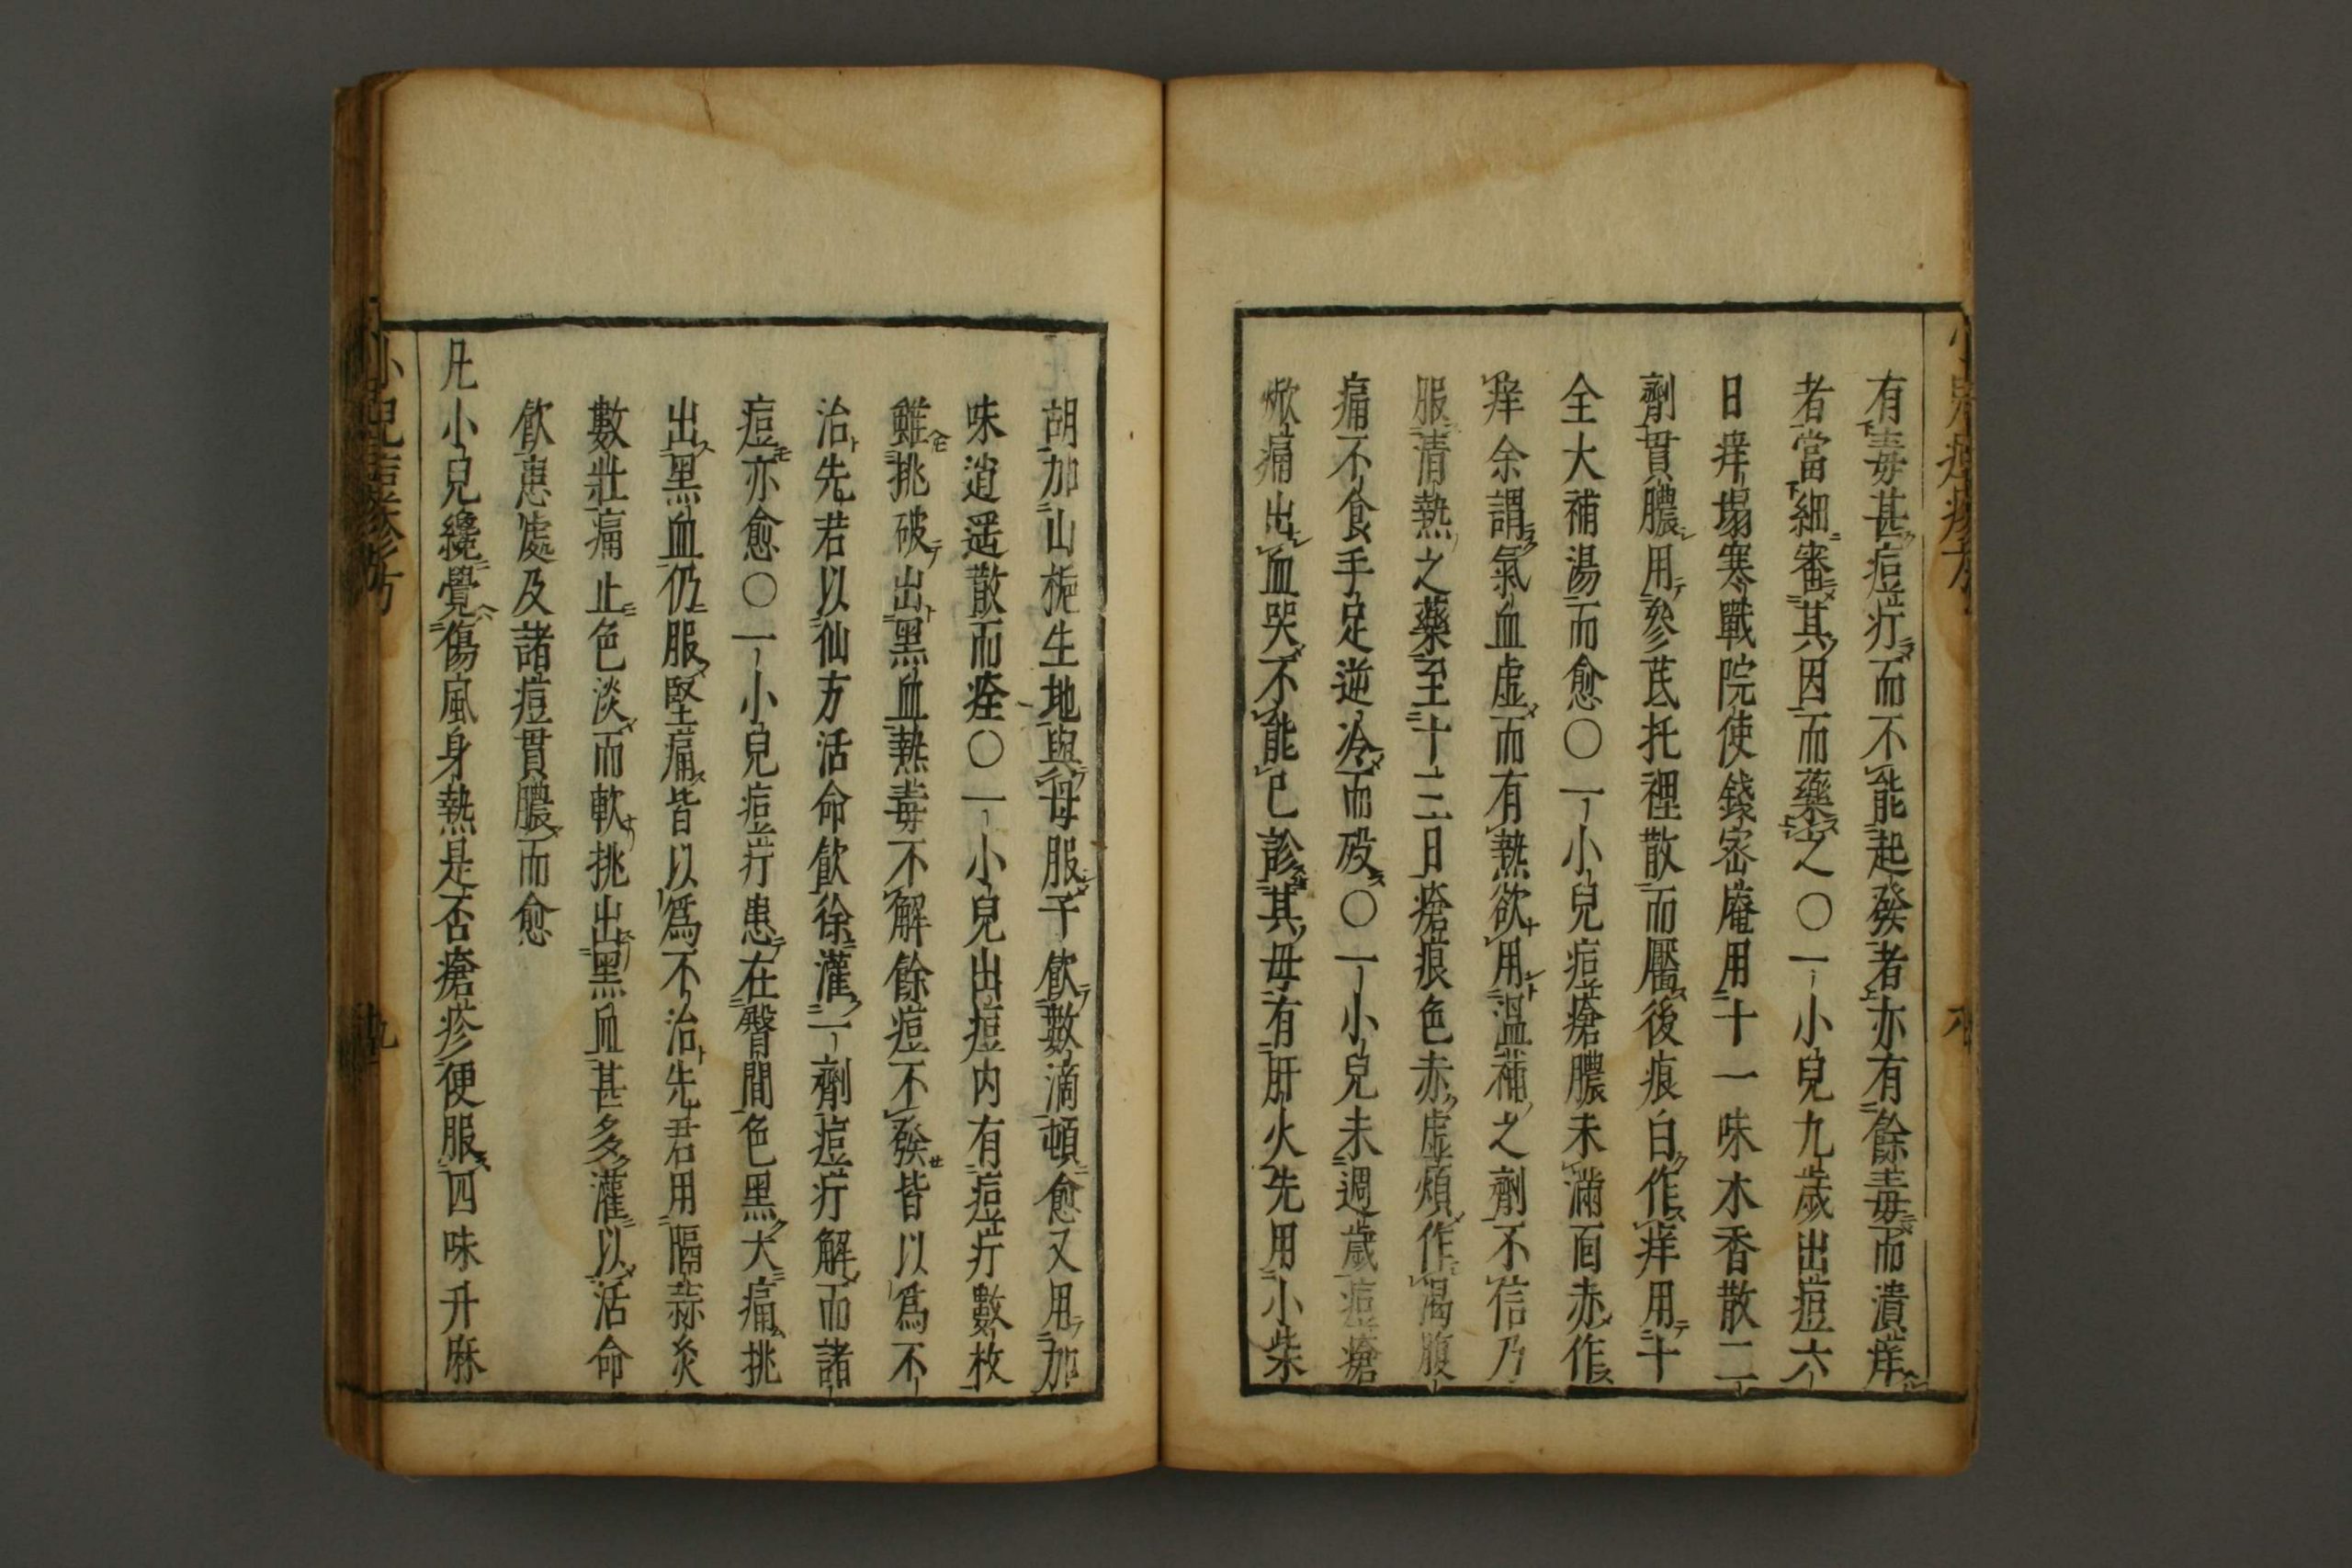 有毒甚痘疔而不能起發者亦有餘毒而潰痒
者當細審其因而藥之〇一小兒九歲出痘六
日痒塌寒戰院使錢宻庵用十一味木香散二
劑貫膿用參芪托裡散而靨後痕白作痒用十
全大補湯而愈〇一小兒痘瘡膿未滿面赤作
痒余謂氣血虛而有熱欲用溫補之劑不信乃
服清熱之藥至十三日瘡痕色赤虛煩作渴腹
痛不食手足逆冷而歿〇一小兒未週歲痘瘡
焮痛出血哭不能已診其母有肝火先用小柴
胡加山梔生地與母服子飲數滴頓愈又用加
味逍遥散而痊〇一小兒出痘内有痘疔數枚
雖挑破出黑血熱毒不解餘痘不發皆以爲不
治先君以仙方活命飲徐灌一劑痘疔解而諸
痘亦愈〇一小兒痘疔患在臀間色黑大痛挑
出黑血仍服堅痛皆以爲不治先君用隔蒜灸
數壯痛止色淡而軟挑出黑血甚多灌以活命
飲患處及諸痘貫膿而愈
凡小兒纔覺傷風身熱是否瘡疹便服四味升麻
九